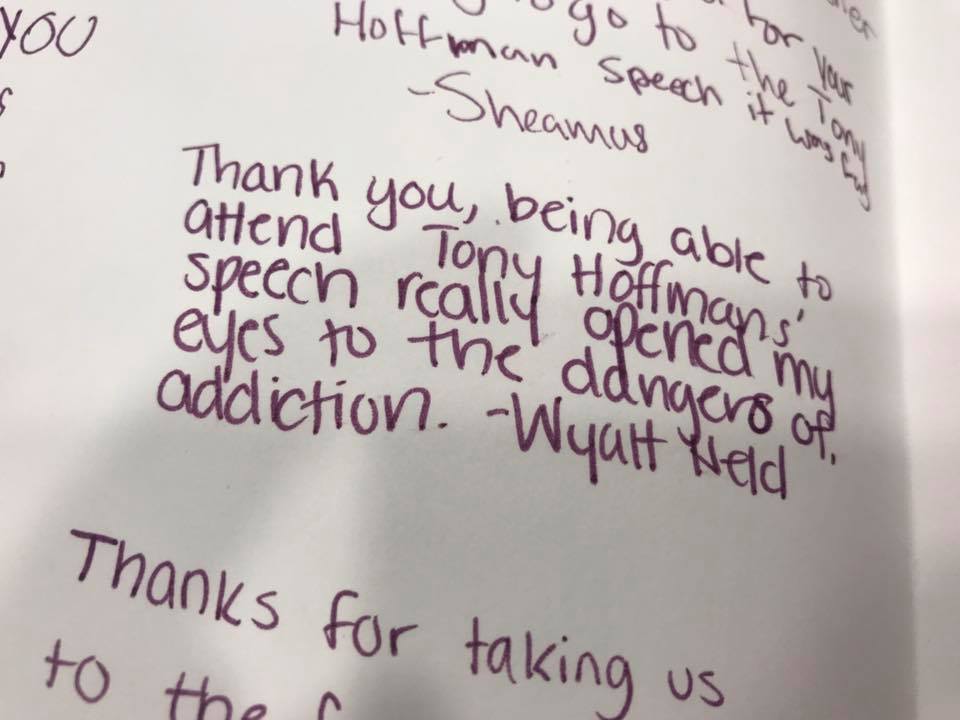 YOU
go to the Tony
Hoffman speech it was
-Sheamus
for your
Thank you, being able to
attend Tony Hoffmans'
speech really opened my
eyes to the dangers of
addiction. -Wyatt Neld
Thanks for taking us
to the